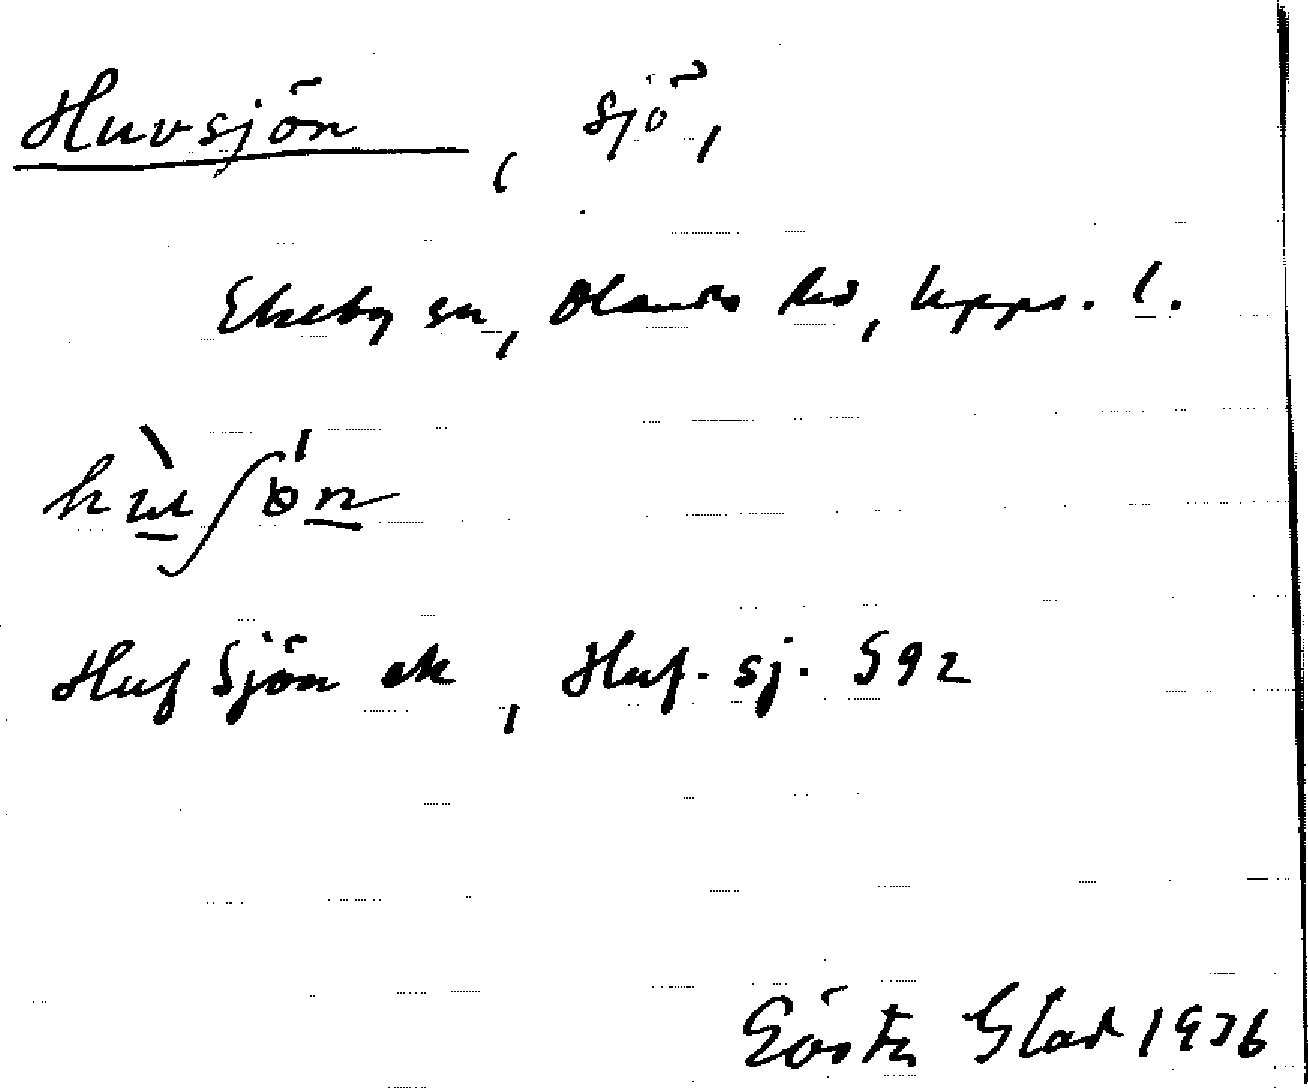 Huvsjön, sjö,
Ekeby sn, Olands hd, Upps. l.
Huf Sjön ek, Huf. sj. S92
Gösta Glad 1936